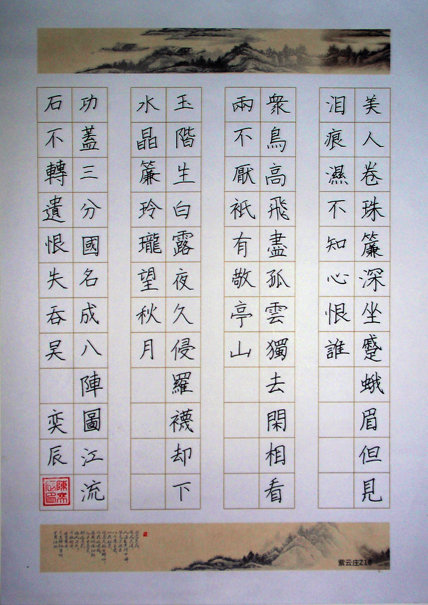 美人卷珠簾深坐蹙蛾眉但見
泪痕濕不知心恨誰
衆鳥高飛盡孤雲獨去閑相看
兩不厭祇有敬亭山
玉階生白露夜久侵羅襪却下
水晶簾玲瓏望秋月
功蓋三分國名成八陣圖江流
石不轉遺恨失吞吴
奕辰
紫云庄Z18